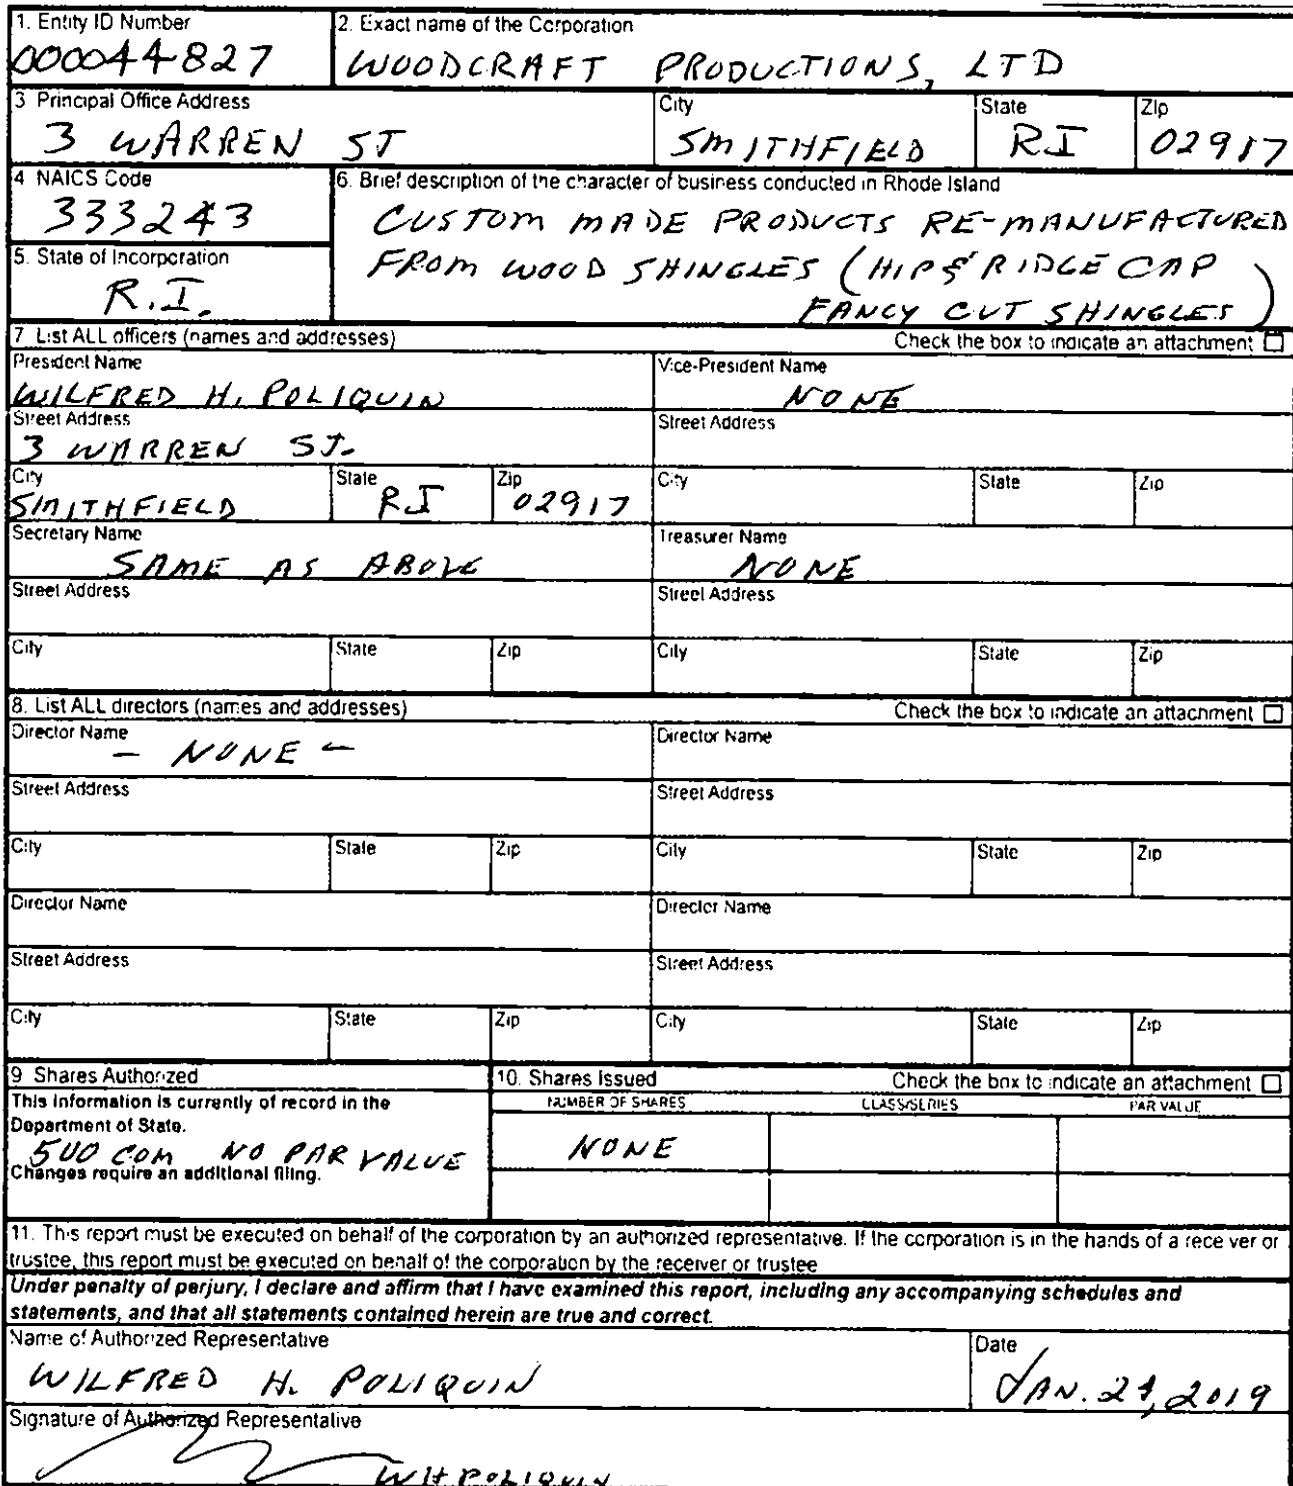 1. Entity ID Number
000044827
2. Exact name of the Corporation
WOODCRAFT PRODUCTIONS, LTD
3 Principal Office Address
3 WARREN ST
City
SMITHFIELD
State
RI
Zip
02917
4 NAICS Code
333243
5. State of Incorporation
R.I.
6. Brief description of the character of business conducted in Rhode Island
CUSTOM MADE PRODUCTS RE-MANUFACTURED
FROM WOOD SHINGLES (HIP & RIDGE CAP
FANCY CUT SHINGLES)
7 List ALL officers (names and addresses) Check the box to indicate an attachment
President Name
WILFRED H. POLIQUIN
Vice-President Name
NONE
Street Address
3 WARREN ST.
Street Address
City
SMITHFIELD
State
RI
Zip
02917
City State Zip
Secretary Name
SAME AS ABOVE
Treasurer Name
NONE
Street Address Street Address
City State Zip City State Zip
8. List ALL directors (names and addresses) Check the box to indicate an attachment
Director Name
- NONE -
Director Name
Street Address Street Address
City State Zip City State Zip
Director Name Director Name
Street Address Street Address
City State Zip City State Zip
9 Shares Authorized
This information is currently of record in the
Department of State.
500 COM NO PAR VALUE
Changes require an additional filing.
10. Shares Issued Check the box to indicate an attachment
NUMBER OF SHARES CLASS/SERIES PAR VALUE
NONE
11. This report must be executed on behalf of the corporation by an authorized representative. If the corporation is in the hands of a receiver or
trustee, this report must be executed on behalf of the corporation by the receiver or trustee
Under penalty of perjury, I declare and affirm that I have examined this report, including any accompanying schedules and
statements, and that all statements contained herein are true and correct.
Name of Authorized Representative
WILFRED H. POLIQUIN
Date
JAN. 24, 2019
Signature of Authorized Representative
WH POLIQUIN